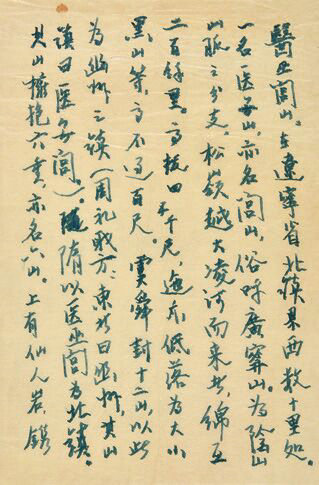 醫巫閭山。在遼寧省北鎮县西数十里处。
一名医無山，亦名閭山，俗呼廣寧山。为陰山
山脈之分支。松嶺越大凌河而来此，綿亙
二百餘里。高拔四五千尺，迤东低落为大小
黑山等，高不过百尺。虞舜封十二山，以此
为幽州之鎮（周礼職方：東北曰幽州，其山
鎮曰医無閭）。隋以医巫閭为北鎮。
其山掩抱六重，亦名六山。上有仙人岩，鐫